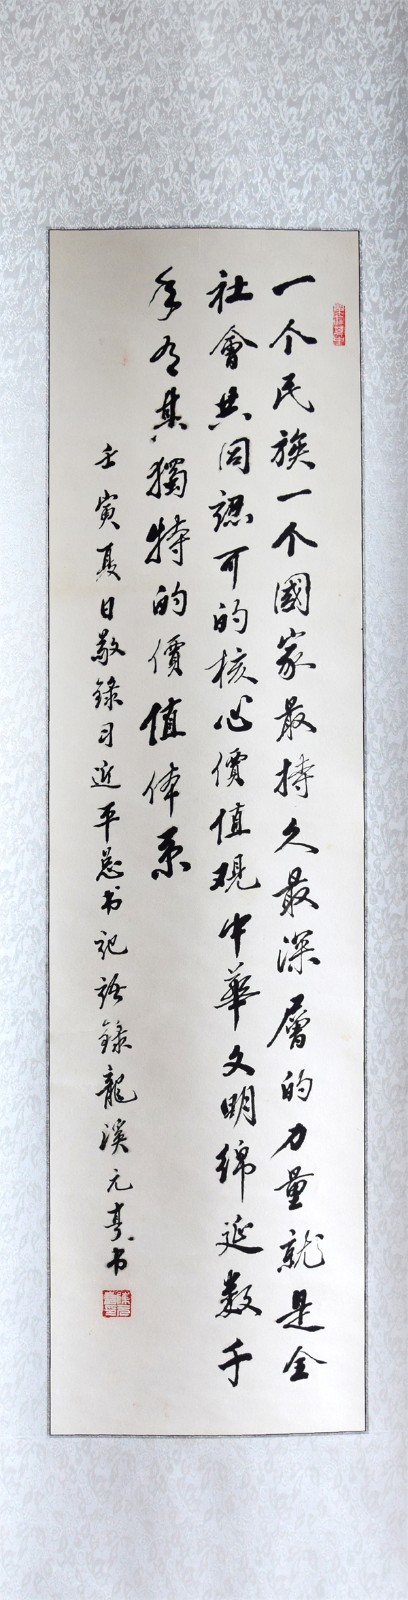 一个民族一个國家最持久最深層的力量就是全
社會共同認可的核心價值观中華文明绵延数千
年有其獨特的價值体系
壬寅夏日敬錄习近平总书记语錄龍溪元亨书